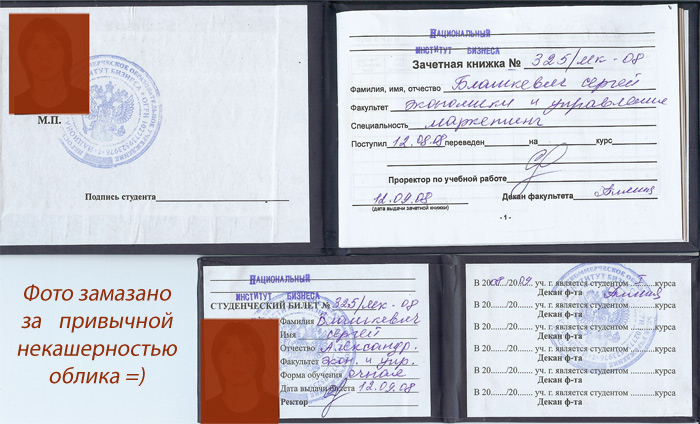 М.П.
Подпись студента
НАЦИОНАЛЬНЫЙ
ИНСТИТУТ БИЗНЕСА
Зачетная книжка № 325/мк-08
Фамилия, имя, отчество Блашкевич Сергей
Факультет экономики и управление
Специальность маркетинг
Поступил 12.08.08 переведен на курс
Проректор по учебной работе
12.09.08 Декан факультета
(дата выдачи зачетной книжки)
- 1 -
Фото замазано
за привычной
некашерностью
облика =)
НАЦИОНАЛЬНЫЙ
ИНСТИТУТ БИЗНЕСА
СТУДЕНЧЕСКИЙ БИЛЕТ № 325/мк-08
Фамилия Блашкевич
Имя Сергей
Отчество Александр.
Факультет экон. и упр.
Форма обучения очная
Дата выдачи билета 12.09.08
Ректор
В 2008/2009 уч. г. является студентом курса
Декан ф-та
В 20....../20...... уч. г. является студентом ..........курса
Декан ф-та
В 20....../20...... уч. г. является студентом ..........курса
Декан ф-та
В 20....../20...... уч. г. является студентом ..........курса
Декан ф-та
В 20....../20...... уч. г. является студентом ..........курса
Декан ф-та
В 20....../20...... уч. г. является студентом ..........курса
Декан ф-та